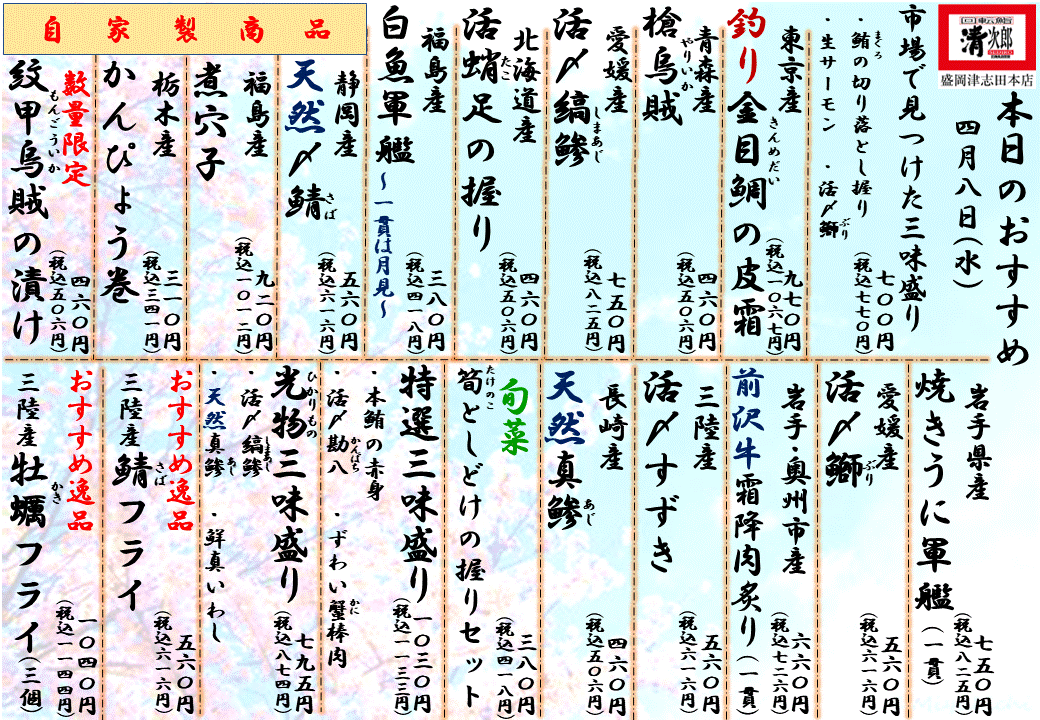 回転鮨
清次郎
盛岡津志田本店
本日のおすすめ
四月八日(水)
市場で見つけた三味盛り
・鮪の切り落とし握り
まぐろ
・生サーモン ・活〆鰤
ぶり
七〇〇円
(税込七七〇円)
東京産
釣り金目鯛の皮霜
きんめだい
九七〇円
(税込一〇六七円)
青森産
槍烏賊
やりいか
四六〇円
(税込五〇六円)
愛媛産
活〆縞鯵
しまあじ
七五〇円
(税込八二五円)
北海道産
活蛸足の握り
たこ
四六〇円
(税込五〇六円)
福島産
白魚軍艦
~一貫は月見~
三八〇円
(税込四一八円)
自家製商品
静岡産
天然〆鯖
さば
五六〇円
(税込六一六円)
福島産
煮穴子
九二〇円
(税込一〇一二円)
栃木産
かんぴょう巻
三一〇円
(税込三四一円)
数量限定
紋甲烏賊の漬け
もんごういか
四六〇円
(税込五〇六円)
岩手県産
焼きうに軍艦(一貫)
七五〇円
(税込八二五円)
愛媛産
活〆鰤
ぶり
五六〇円
(税込六一六円)
岩手・奥州市産
前沢牛霜降肉炙り(一貫)
六六〇円
(税込七二六円)
三陸産
活〆すずき
五六〇円
(税込六一六円)
長崎産
天然真鯵
あじ
四六〇円
(税込五〇六円)
旬菜
筍としどけの握りセット
たけのこ
三八〇円
(税込四一八円)
特選三味盛り
・本鮪の赤身
・活〆勘八 ・ずわい蟹棒肉
かんぱち
かに
一〇三〇円
(税込一一三三円)
光物三味盛り
ひかりもの
・活〆縞鯵
しまあじ
・天然真鯵 ・鮮真いわし
あじ
七九五円
(税込八七四円)
おすすめ逸品
三陸産鯖フライ
さば
五六〇円
(税込六一六円)
おすすめ逸品
三陸産牡蠣フライ(三個)
かき
一〇四〇円
(税込一一四四円)